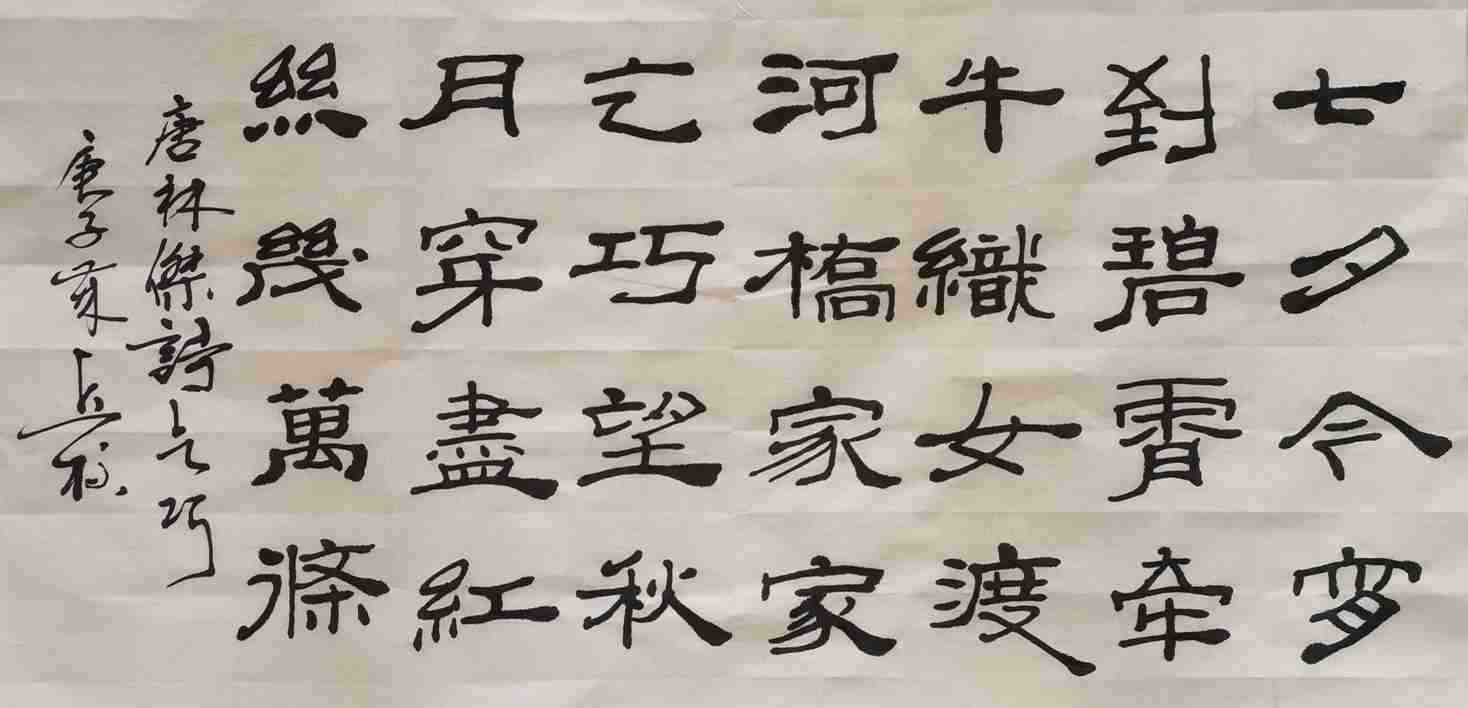 七夕今宵
到碧霄牽
牛織女渡
河橋家家
乞巧望秋
月穿盡紅
絲幾萬條
唐林傑詩乞巧
庚子